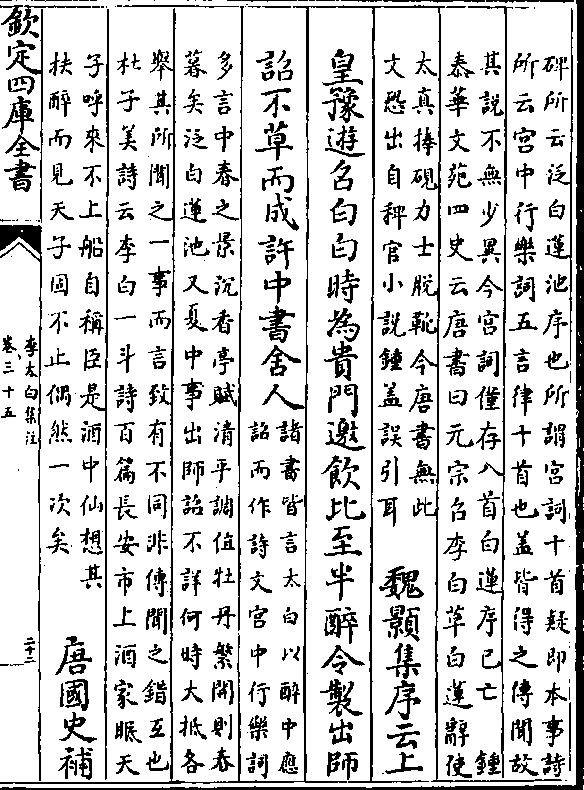 碑所云泛白蓮池序也所謂宮詞十首疑即本事詩
所云宮中行樂詞五言律十首也蓋皆得之傳聞故
其說不無少異今宮詞僅存八首白蓮序已亡 鍾
泰華文苑四史云唐書曰元宗召李白草白蓮辭使
太真捧硯力士脫靴今唐書無此
文恐出自稗官小說鍾蓋誤引耳
魏顥集序云上
皇豫遊召白白時為貴門邀飲比至半醉令製出師
詔不草而成許中書舍人
諸書皆言太白以醉中應
詔而作詩文宮中行樂詞
多言中春之景沉香亭賦清平調值牡丹繁開則春
暮矣泛白蓮池又夏中事出師詔不詳何時大抵各
舉其所聞之一事而言致有不同非傳聞之錯互也
杜子美詩云李白一斗詩百篇長安市上酒家眠天
子呼來不上船自稱臣是酒中仙想其
扶醉而見天子固不止偶然一次矣
唐國史補
欽定四庫全書
李太白集注
卷三十五
二十三